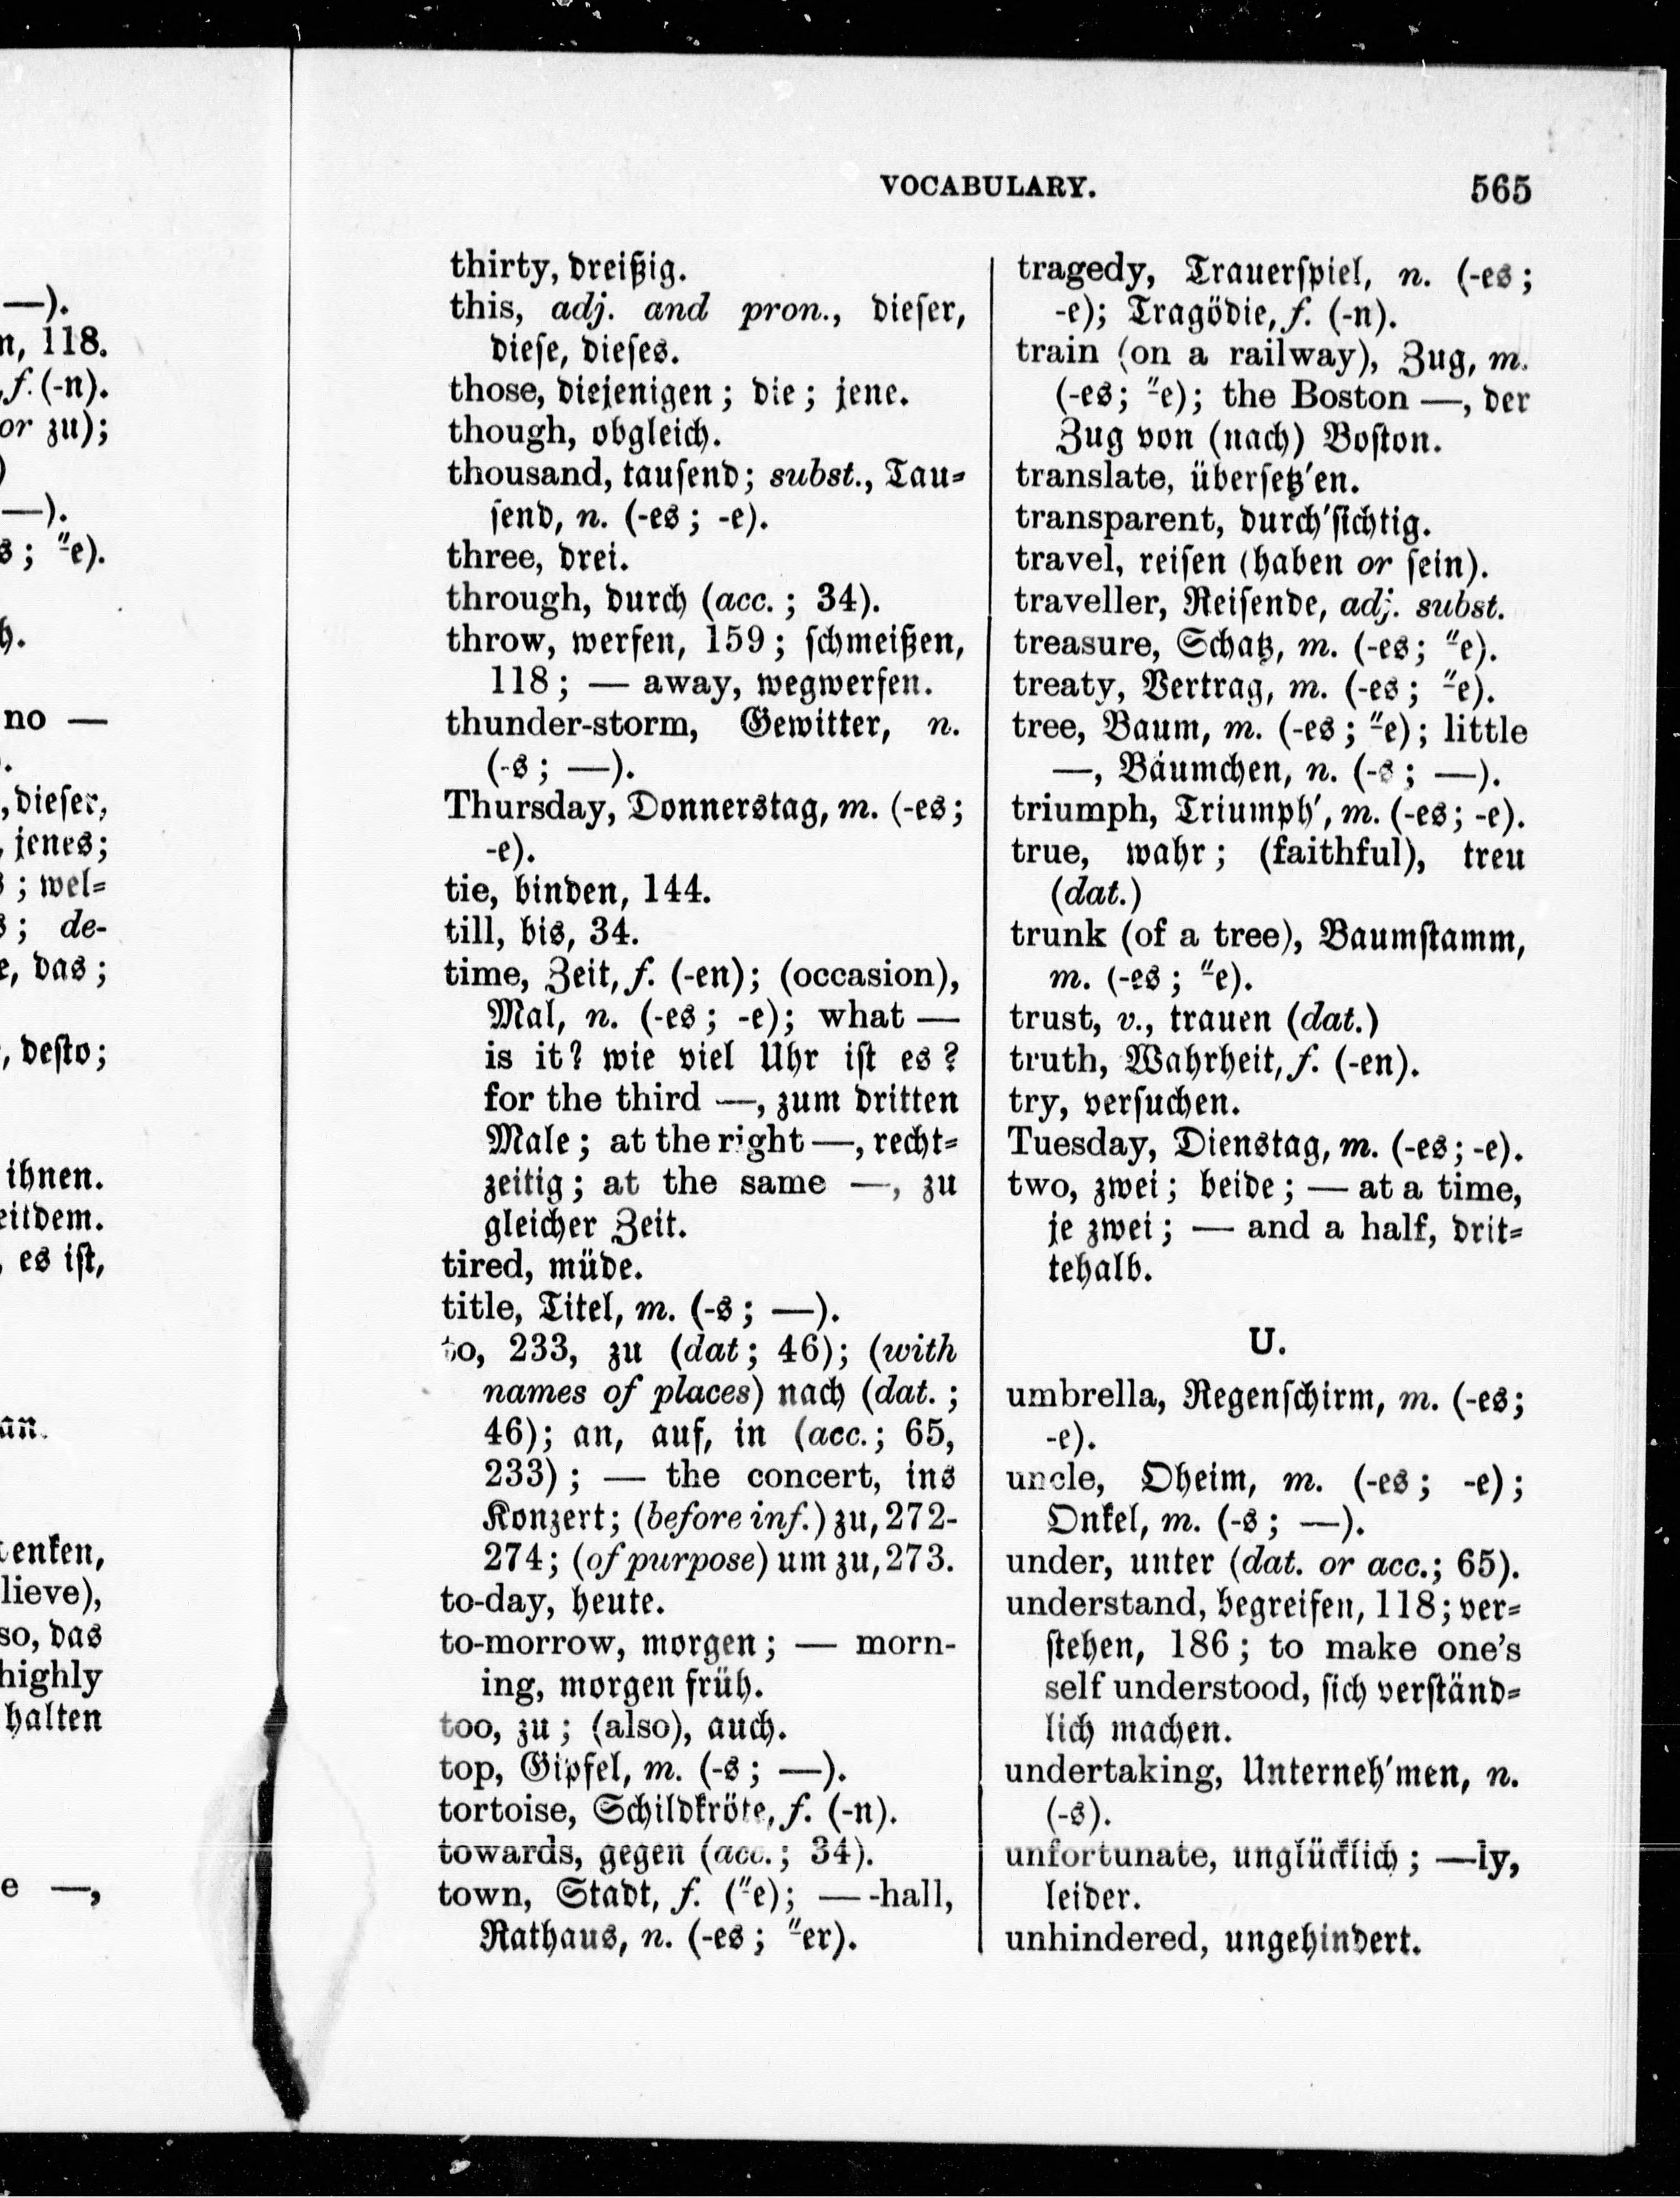 —).
n, 118.
, f. (-n).
or zu);
)
—).
s; ⸚e).
h.
no —
.
, dieser,
, jenes;
s; wel=
s; de-
e, das;
, desto;
ihnen.
eitdem.
, es ist,
enken,
lieve),
so, das
highly
halten
e —,
VOCABULARY. 565
thirty, dreißig.
this, adj. and pron., dieser,
diese, dieses.
those, diejenigen; die; jene.
though, obgleich.
thousand, tausend; subst., Tau=
send, n. (-es; -e).
three, drei.
through, durch (acc.; 34).
throw, werfen, 159; schmeißen,
118; — away, wegwerfen.
thunder-storm, Gewitter, n.
(-s; —).
Thursday, Donnerstag, m. (-es;
-e).
tie, binden, 144.
till, bis, 34.
time, Zeit, f. (-en); (occasion),
Mal, n. (-es; -e); what —
is it? wie viel Uhr ist es?
for the third —, zum dritten
Male; at the right —, recht=
zeitig; at the same —, zu
gleicher Zeit.
tired, müde.
title, Titel, m. (-s; —).
to, 233, zu (dat; 46); (with
names of places) nach (dat.;
46); an, auf, in (acc.; 65,
233); — the concert, ins
Konzert; (before inf.) zu, 272-
274; (of purpose) um zu, 273.
to-day, heute.
to-morrow, morgen; — morn-
ing, morgen früh.
too, zu; (also), auch.
top, Gipfel, m. (-s; —).
tortoise, Schildkröte, f. (-n).
towards, gegen (acc.; 34).
town, Stadt, f. (⸚e); — -hall,
Rathaus, n. (-es; ⸚er).
tragedy, Trauerspiel, n. (-es;
-e); Tragödie, f. (-n).
train (on a railway), Zug, m.
(-es; ⸚e); the Boston —, der
Zug von (nach) Boston.
translate, übersetz'en.
transparent, durch'sichtig.
travel, reisen (haben or sein).
traveller, Reisende, adj. subst.
treasure, Schatz, m. (-es; ⸚e).
treaty, Vertrag, m. (-es; ⸚e).
tree, Baum, m. (-es; ⸚e); little
—, Bäumchen, n. (-s; —).
triumph, Triumph', m. (-es; -e).
true, wahr; (faithful), treu
(dat.)
trunk (of a tree), Baumstamm,
m. (-es; ⸚e).
trust, v., trauen (dat.)
truth, Wahrheit, f. (-en).
try, versuchen.
Tuesday, Dienstag, m. (-es; -e).
two, zwei; beide; — at a time,
je zwei; — and a half, drit=
tehalb.
U.
umbrella, Regenschirm, m. (-es;
-e).
uncle, Oheim, m. (-es; -e);
Onkel, m. (-s; —).
under, unter (dat. or acc.; 65).
understand, begreifen, 118; ver=
stehen, 186; to make one's
self understood, sich verständ=
lich machen.
undertaking, Unterneh'men, n.
(-s).
unfortunate, unglücklich; —ly,
leider.
unhindered, ungehindert.